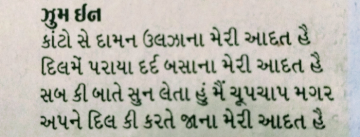 ઝુમ ઇન
કાંટો સે દામન ઉલઝાના મેરી આદત હૈ
દિલમેં પરાયા દર્દ બસાના મેરી આદત હૈ
સબ કી બાતે સુન લેતા હું મૈં ચૂપચાપ મગર
અપને દિલ કી કરતે જાના મેરી આદત હૈ